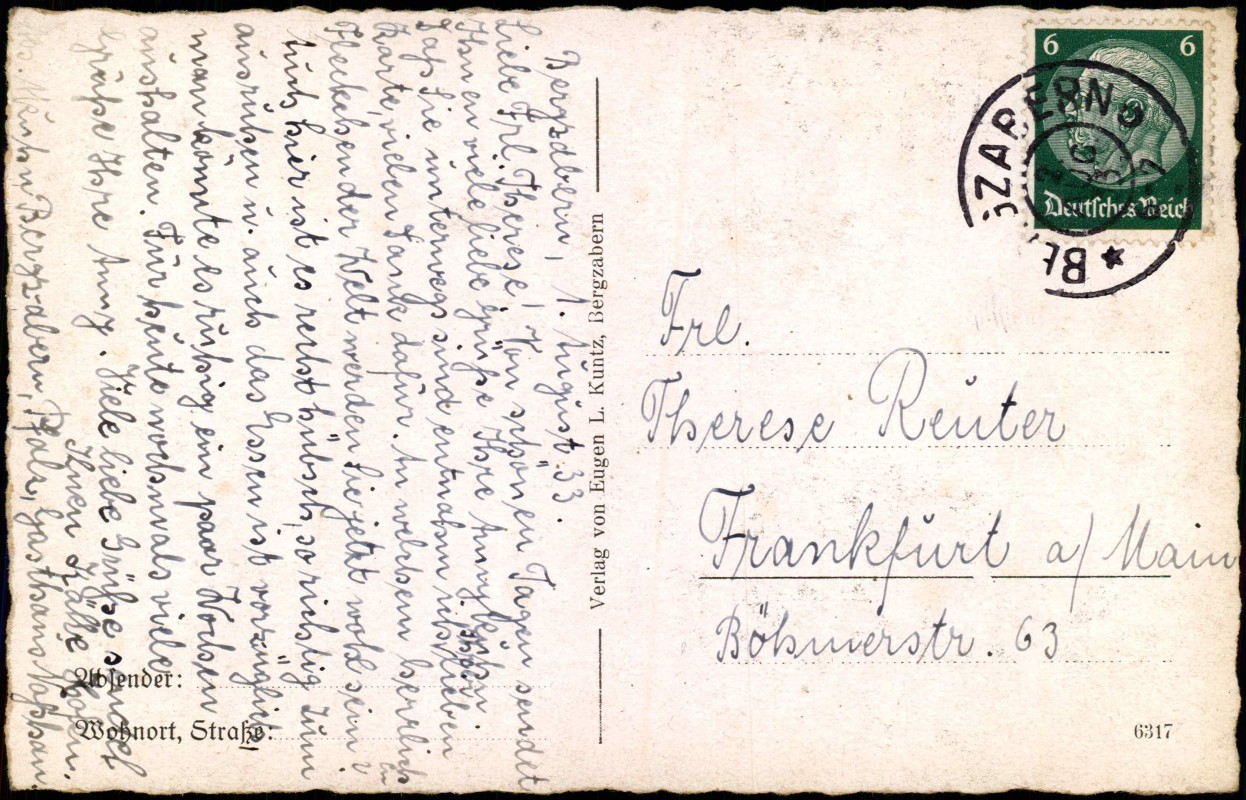 Bergzabern, 1. August 33.
Liebe Frl. Therese! Von schönen Tagen sendet
Ihnen viele liebe Grüße Ihre Annyleuchen.
Daß Sie unterwegs sind entnahm ich Ihrer lieben
Karte, vielen Dank dafür. In welchem herrlich
Fleckchen der Welt werden Sie jetzt wohl sein?
Auch hier ist es recht hübsch, so richtig zum
ausruhen u. auch das Essen ist vorzüglich
man könnte es ruhig ein paar Wochen
aushalten. Für heute nochmals viele
Grüße Ihre Anny. Viele liebe Grüße sendet
Ihnen Käthe
Bergzabern, Pfalz, Gasthaus
Verlag von Eugen L. Kuntz, Bergzabern
Absender:
Wohnort, Straße:
6 6
Deutsches Reich
BERGZABERN
Frl.
Therese Reuter
Frankfurt a/Main
Böhmerstr. 63
6317